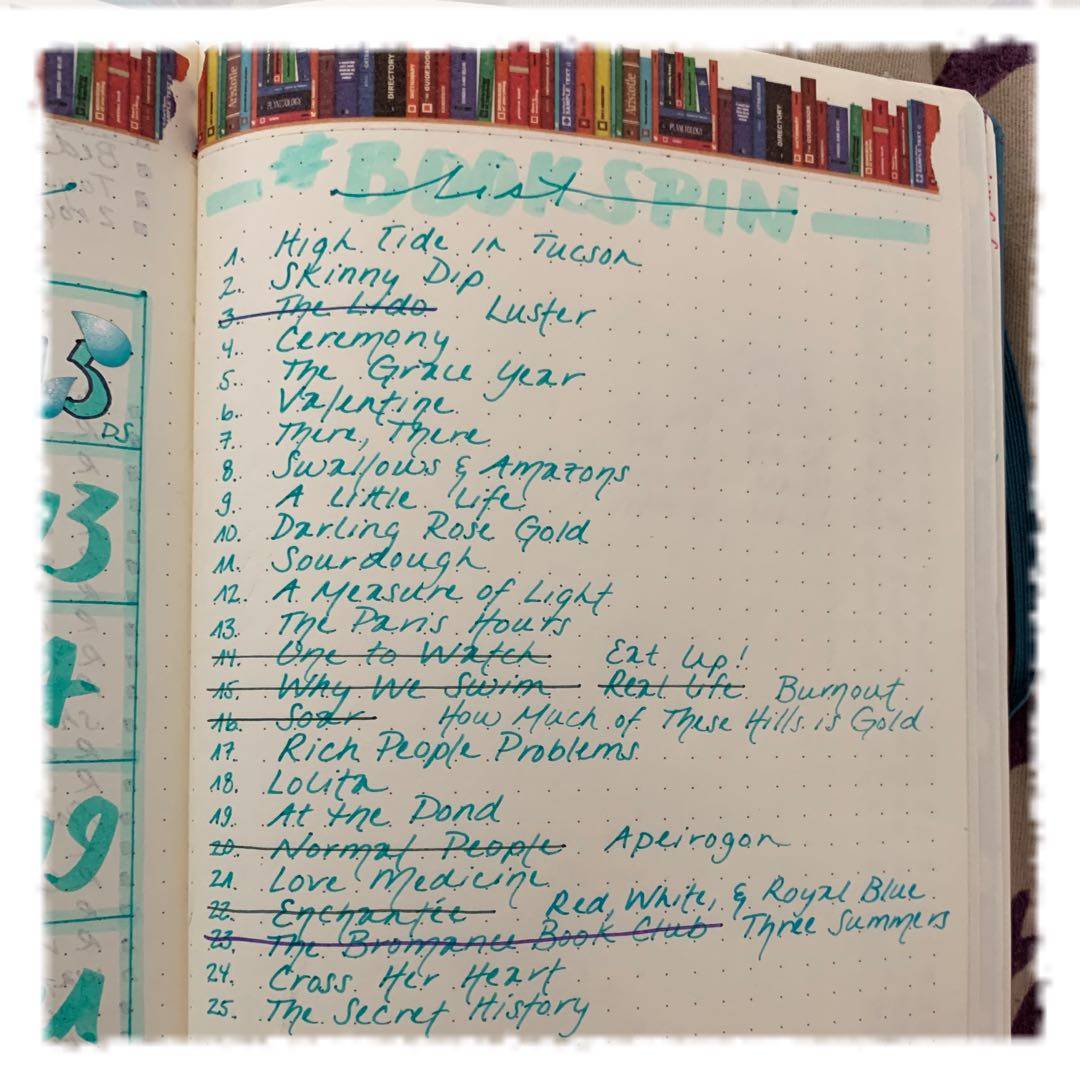 Aristotle
PLANETOLOGY
DIRECTORY
GUIDEBOOK
SAMPLE TEXT
Aristotle
PLANETOLOGY
DIRECTORY
GUIDEBOOK
SAMPLE TEXT
#BOOKSPIN
List
1. High Tide in Tucson
2. Skinny Dip
3. The Lido Luster
4. Ceremony
5. The Grace Year
6. Valentine
7. There, There
8. Swallows & Amazons
9. A Little Life
10. Darling Rose Gold
11. Sourdough
12. A Measure of Light
13. The Paris Hours
14. One to Watch Eat Up!
15. Why We Swim Real Life Burnout
16. Soar How Much of These Hills is Gold
17. Rich People Problems
18. Lolita
19. At the Pond
20. Normal People Apeirogon
21. Love Medicine
22. Enchantée Red, White, & Royal Blue
23. The Bromance Book Club Three Summers
24. Cross Her Heart
25. The Secret History
5
DS
3
9